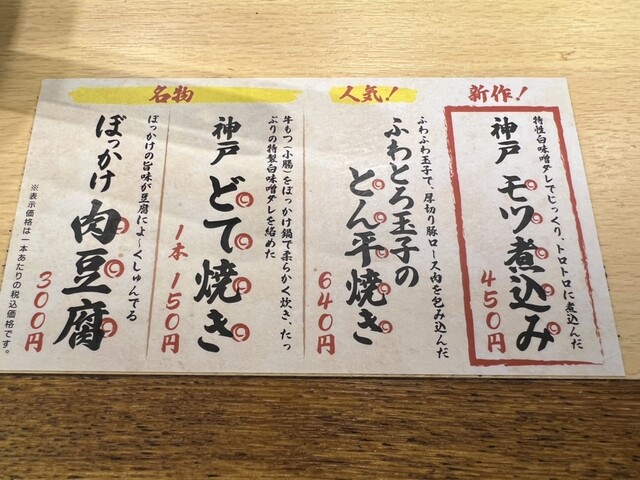 新作！
特性白味噌ダレでじっくり、トロトロに煮込んだ
神戸 モツ煮込み
450円
人気！
ふわふわ玉子で、厚切り豚ロース肉を包み込んだ
ふわとろ玉子の
とん平焼き
640円
名物
牛もつ（小腸）をぼっかけ鍋で柔らかく炊き、たっ
ぷりの特製白味噌ダレを絡めた
神戸 どて焼き
1本 150円
ぼっかけの旨味が豆腐によ〜くしゅんでる
ぼっかけ 肉豆腐
300円
※表示価格は一本あたりの税込価格です。